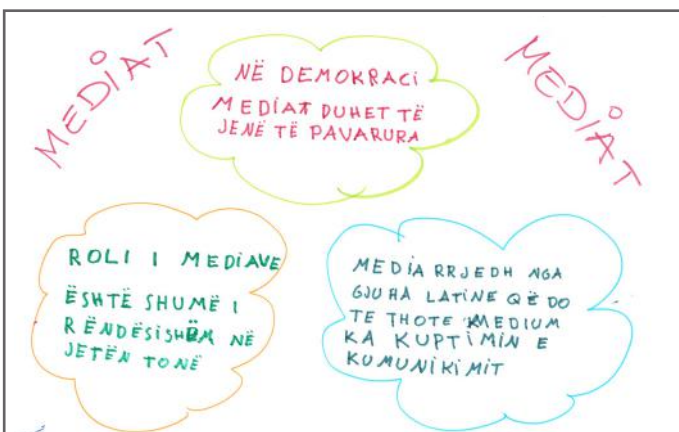 MEDIAT
NË DEMOKRACI
MEDIAT DUHET TË
JENË TË PAVARURA
MEDIAT
ROLI I MEDIAVE
ËSHTË SHUMË I
RËNDËSISHËM NË
JETËN TONË
MEDIA RRJEDH NGA
GJUHA LATINE QË DO
TE THOTE MEDIUM
KA KUPTIMIN E
KUMUNIKIMIT